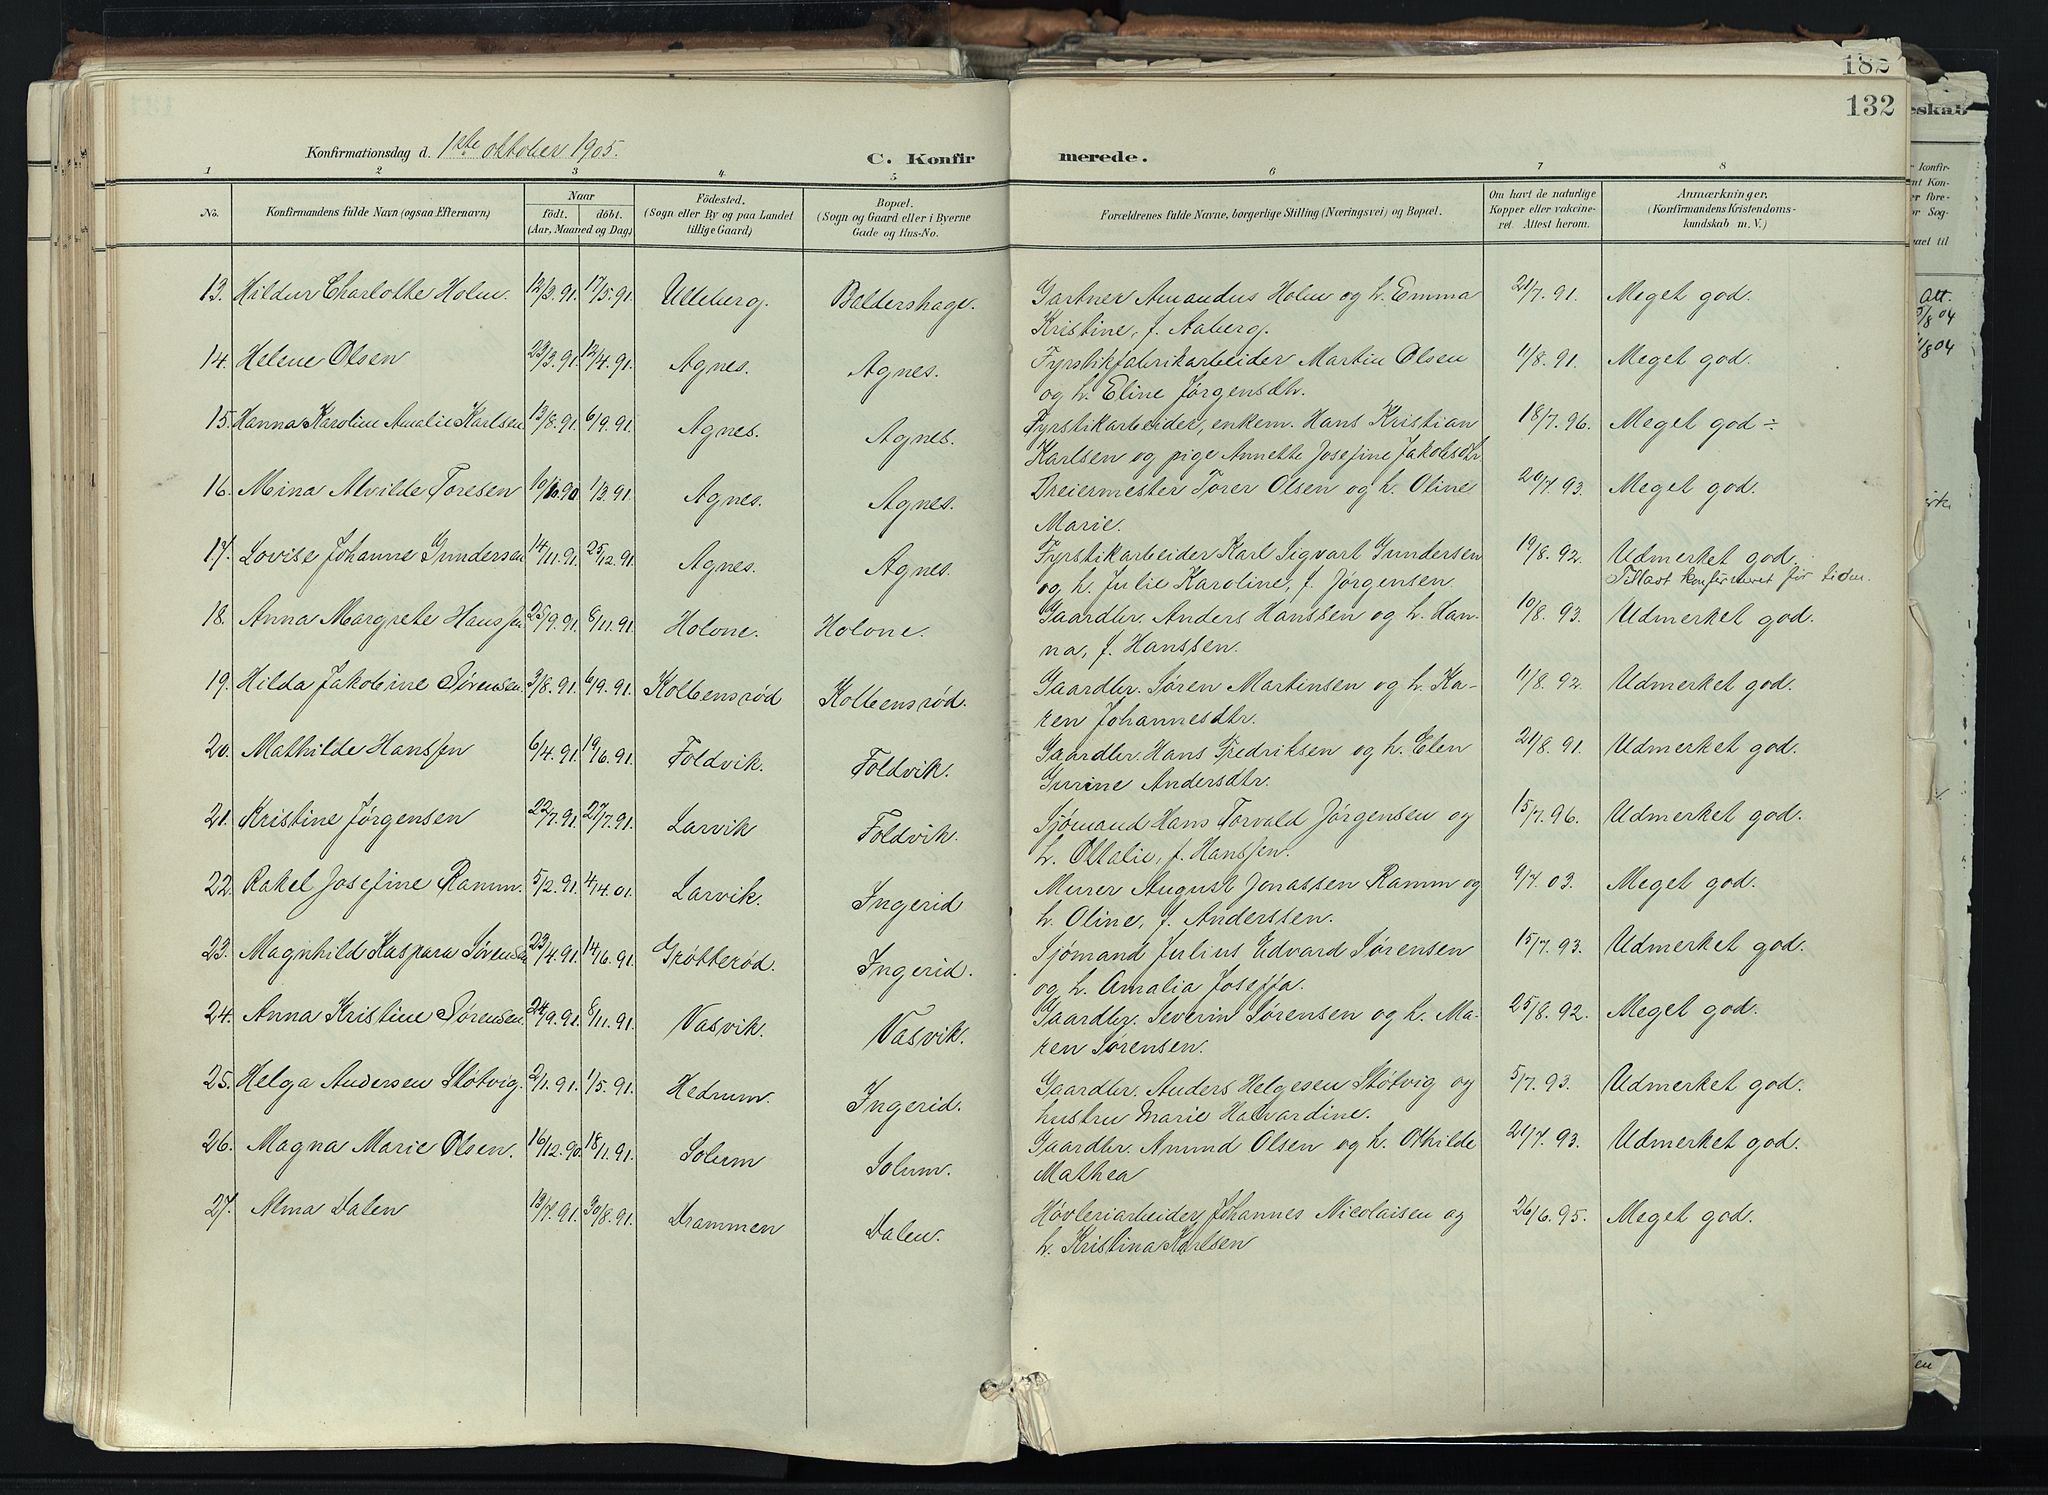 182
132
Konfirmationsdag d. 1ste oktober 1905.
C. Konfirmerede.
1 2 3 4. 5 6 7 8
No.
Konfirmandens fulde Navn (ogsaa Efternavn)
Naar
födt. döbt.
(Aar, Maaned og Dag)
Födested.
(Sogn eller By og paa Landet
tillige Gaard)
Bopæl.
(Sogn og Gaard eller i Byerne
Gade og Hus-No.
Forældrenes fulde Navne, borgerlige Stilling (Næringsvei) og Bopæl.
Om havt de naturlige
Kopper eller vakcine-
ret. Attest herom.
Anmærkninger.
(Konfirmandens Kristendoms-
kundskab m. V.)
13. Hildur Charlotte Holm. 12/3.91. 17/5.91. Ulleberg. Baldershage. Gartner Amandus Holm og h. Emma 21/7.91. Meget god.
Kristine, f. Aaberg.
14. Helene Olsen 23/3.91. 12/4.91. Agnes. Agnes. Fyrstikfabrikarbeider Martin Olsen 11/8.91. Meget god.
og h. Eline Jørgensdtr.
15. Hanna Karoline Amalie Karlsen 13/8.91. 6/9.91. Agnes. Agnes. Fyrstikarbeider, enkem. Hans Kristian 18/7.96. Meget god ÷
Karlsen og pige Annette Josefine Jakobsdtr
16. Mina Alvilde Toresen 1/3.91. Agnes. Agnes. Dreiermester Torer Olsen og h. Oline 20/7.93. Meget god.
Marie.
17. Lovise Johanne Gundersen 14/11.91. 25/12.91. Agnes. Agnes. Fyrstikarbeider Karl Sigvart Gundersen 19/8.92. Udmerket god.
og h. Julie Karoline, f. Jørgensen. Tilladt konfirmeret før tiden.
18. Anna Margrete Hanssen 25/9.91. 8/11.91. Holone. Holone. Gaardbr. Anders Hanssen og h. Han- 10/8.93. Udmerket god.
na, f. Hanssen.
19. Hilda Jakobine Sørensen 3/8.91. 6/9.91. Kolbensrød Kolbensrød. Gaardbr. Søren Martinsen og h. Ka- 11/8.92. Udmerket god.
ren Johannesdtr.
20. Mathilde Hanssen 6/4.91. 19/6.91. Foldvik. Foldvik. Gaardbr. Hans Fredriksen og h. Elen 21/8.91. Udmerket god.
Gurine Andersdtr.
21. Kristine Jørgensen 22/7.91. 27/7.91. Larvik Foldvik. Sjømand Hans Torvald Jørgensen og 15/7.96. Udmerket god.
h. Ottalie, f. Hanssen.
22. Rakel Josefine Ramm. 5/2.91. 4/4.01. Larvik. Ingerid Murer August Jonassen Ramm og 9/7.03. Meget god.
h. Oline, f. Anderssen.
23. Magnhild Kaspara Sørensen 23/4.91. 14/6.91. Grøtterød. Ingerid. Sjømand Julius Edvard Sørensen 15/7.93. Udmerket god.
og h. Amalia Joseffa.
24. Anna Kristine Sørensen 24/9.91. 8/11.91. Vasvik. Vasvik. Gaardbr. Severin Sørensen og h. Ma- 25/8.92. Meget god.
ren Sørensen.
25. Helga Andersen Skøtvig. 2/1.91. 1/5.91. Hedrum. Ingerid. Gaardbr. Anders Helgesen Skøtvig og 5/7.93. Udmerket god.
hustru Marie Halvardine.
26. Magna Marie Olsen. 16/12.90. 18/1.91. Solum Solum. Gaardbr. Amund Olsen og h. Othilde 21/7.93. Udmerket god.
Mathea
27. Alma Dalen 13/7.91. 30/8.91. Drammen Dalen. Høvleriarbeider Johannes Nicolaisen og 26/6.95. Meget god.
h. Kristina Karlsen